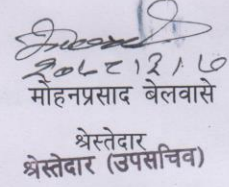 २०८८।३।७
मोहनप्रसाद बेलवासे
श्रेस्तेदार
श्रेस्तेदार (उपसचिव)